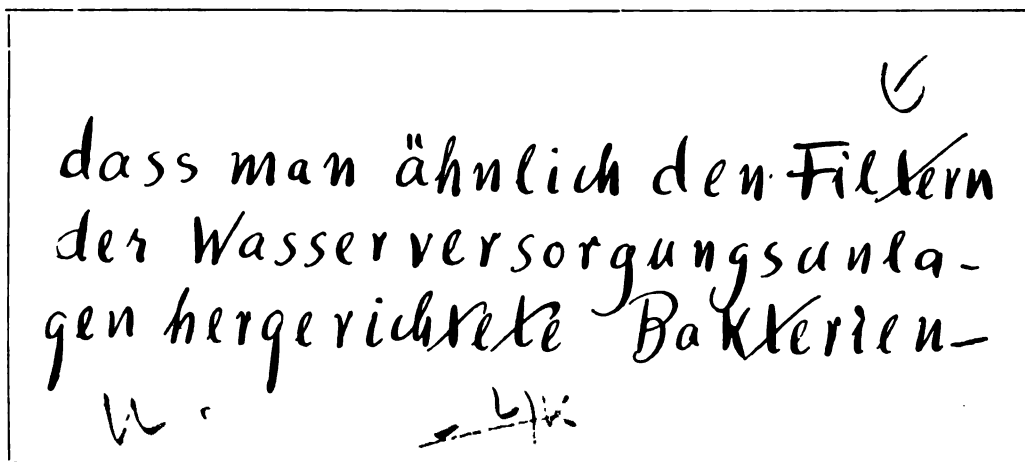 dass man ähnlich den Filtern
der Wasserversorgungsanla-
gen hergerichtete Bakterien-